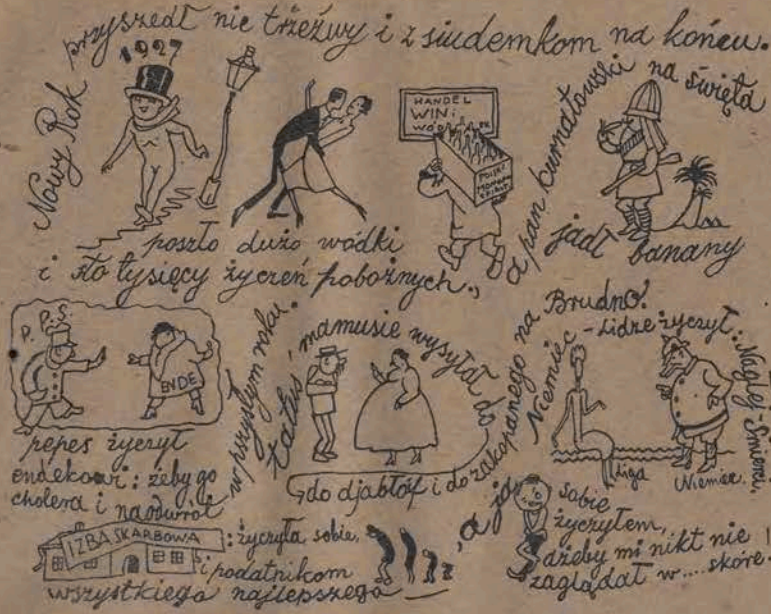 Nowy Rok przyszedł nie trzeźwy i z siudemkom na końcu.
1927
HANDEL
WIN i
WÓDEK
POLSKI
MONOPOL
SPIRYT.
poszło dużo wódki
i sto tysięcy życzeń pobożnych.,
a pan Kurnatowski na święta
jadł banany
P.P.S.
ENDE
pepes życzył
endekowi: żeby go
cholera i naodwrót
w pszyszłym roku.
tatuś, mamusie wysyłał do
do djabłóf i do zakopanego na Brudno.
Niemiec - Lidze życzył: Nagłej-Śmierci,
Liga
Niemiec.
IZBA SKARBOWA
: życzyła sobie,
i podatnikom
wszystkiego najlepszego
, a ja
sobie
życzyłem,
ażeby mi nikt nie
zaglądał w.... skóre!